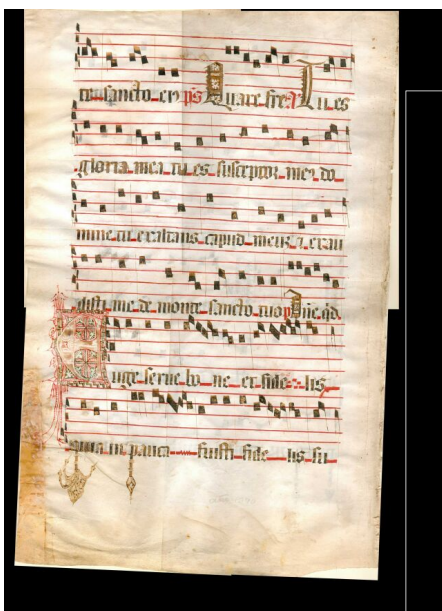 te sancto eiꝰ ps Quare fre a Tu es
gloria mea tu es susceptor meꝰ do
mine tu exaltans capud meuꝫ ⁊ exau
disti me de monte sancto tuo p Dn̄e qd
uge serue bo ne et fide lis
quia in pauca fuisti fide lis su